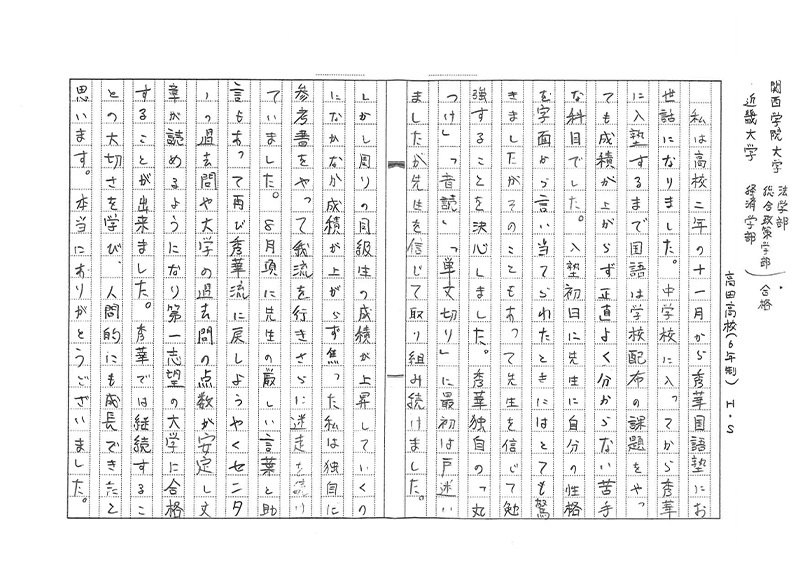 関西学院大学 法学部
総合政策学部 合格
近畿大学 経済学部
高田高校(6年制) H・S
私は高校二年の十一月から秀華国語塾にお
世話になりました。中学校に入ってから秀華
に入塾するまで国語は学校配布の課題をやっ
ても成積が上がらず正直よく分からない苦手
な科目でした。入塾初日に先生に自分の性格
を字面から言い当てられたときにはとても驚
きましたがそのこともあって先生を信じて勉
強することを決心しました。秀華独自の「丸
つけ」「音読」「単文切り」に最初は戸迷い
ましたが先生を信じて取り組み続けました。
しかし周りの同級生の成積が上昇していくの
になかなか成積が上がらず焦った私は独自に
参考書をやって我流を行きさらに迷走を続け
ていました。8月頃に先生の厳しい言葉と助
言もあって再び秀華流に戻しようやくセンタ
ーの過去問や大学の過去問の点数が安定し文
章が読めるようになり第一志望の大学に合格
することが出来ました。秀華では継続するこ
との大切さを学び、人間的にも成長できたと
思います。本当にありがとうございました。